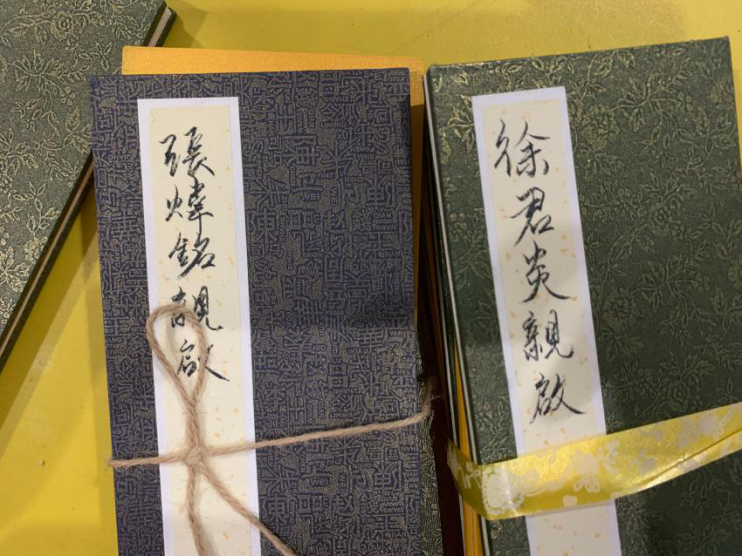 張煒銘親啟
徐君炎親啟